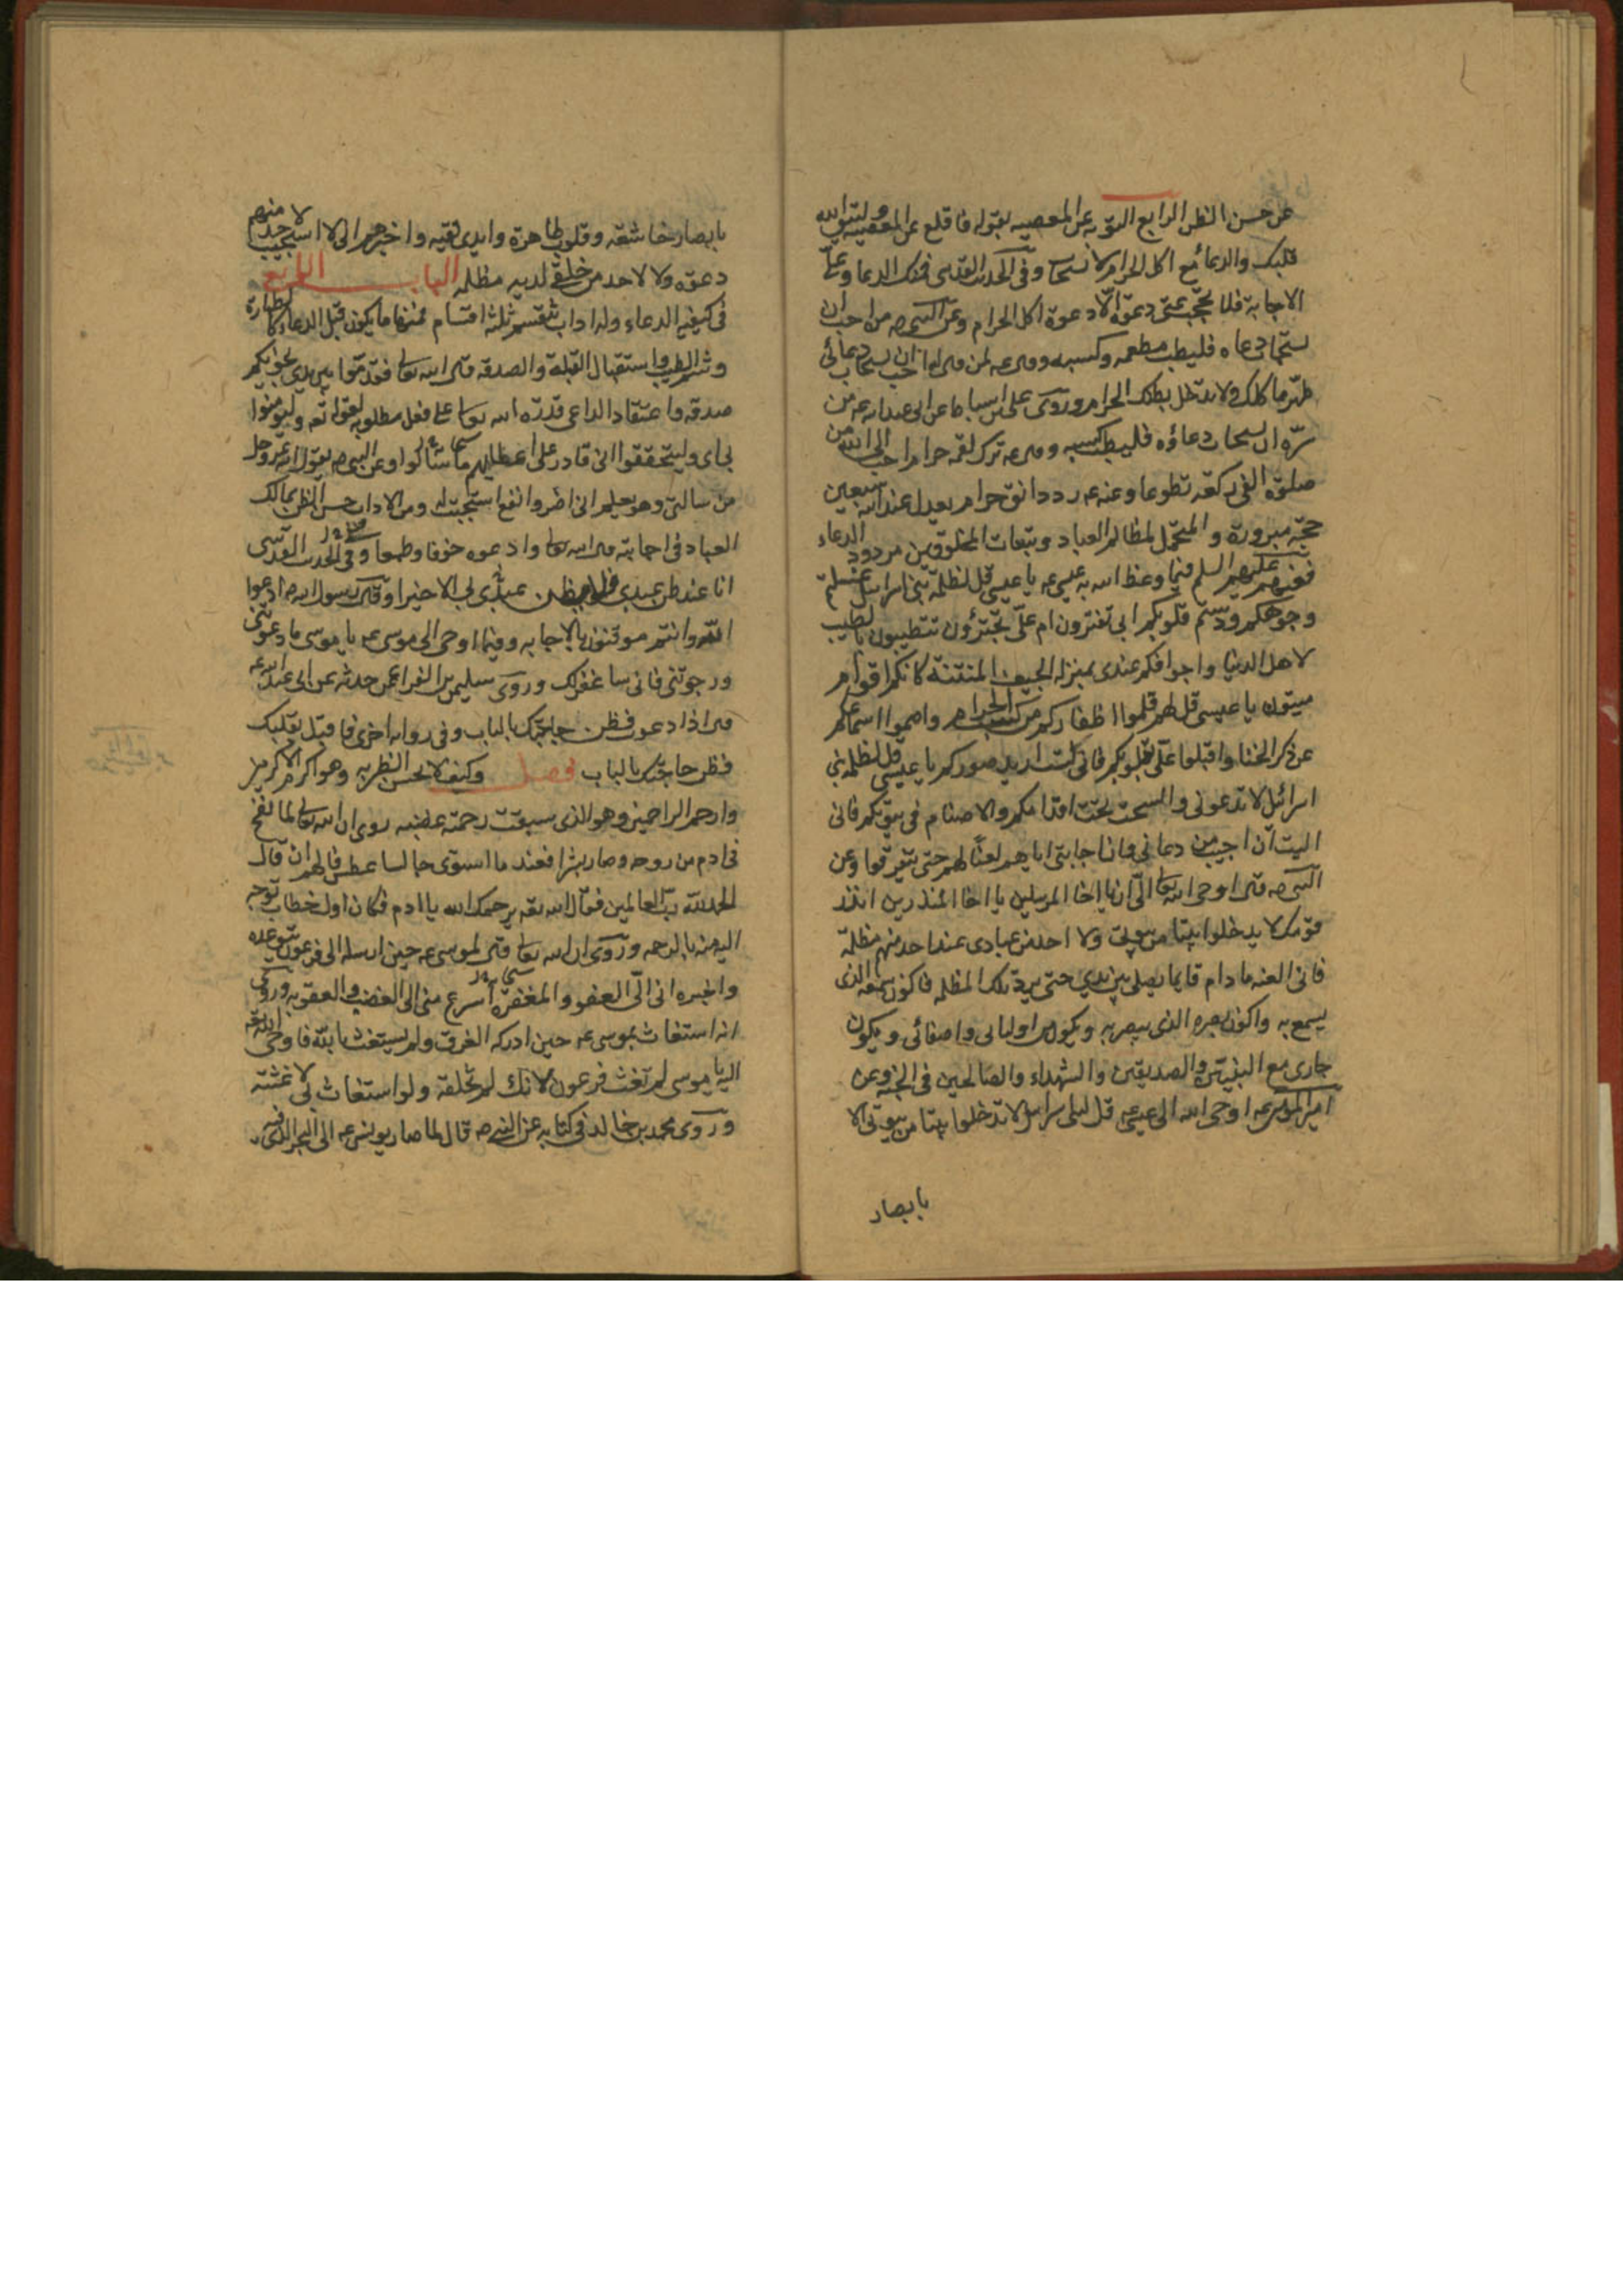 عن حسن الظن الرابع التوبه عن المعصيه لقوله فاقلع عن المعصيه
قلبك والدعاء مع اكل الحرام لا يستجاب وفى الحديث القدسى فمنك الدعا وعلىّ
الاجابة فلا تحجب عنى دعوة الا دعوة اكل الحرام وعن النبى صه من احب ان
يستجاب دعاه فليطب مطعمه وكسبه وقال عه لمن قال له احب ان يستجاب دعائى
طهر ماكلك ولا تدخل بطنك الحرام وروى على بن اسباط عن ابى عبد الله عه من
سرّه ان يستجاب دعاؤه فليطب كسبه وقال عه ترك لقمه حرام احب الى الله من
صلوة الفى ركعة تطوعا وعنه عه رد دانق حرام يعدل عند الله سبعين
حجّة مبرورة والمتحمل لمظالم العباد وتبعات المخلوقين مردود الدعاء
فعنهم عليهم السلم فيما وعظ الله به عيسى عه يا عيسى قل لظلمة بنى اسرائيل غسلتم
وجوهكم ودنستم قلوبكم ابى تغترون ام علىّ تجترؤن تتطيبون بالطيب
لاهل الدنيا واجوافكم عندى بمنزلة الجيف المنتنة كانكم اقوام
ميتون يا عيسى قل لهم قلموا اظفاركم من كسب الحرام واصموا اسماعكم
عن ذكر الخنا واقبلوا علىّ بقلوبكم فانى لست اريد صوركم يا عيسى قل لظلمة بنى
اسرائيل لا تدعونى والسحت تحت اقدامكم والاصنام فى بيوتكم فانى
اليت ان اجيب من دعانى وان اجابتى اياهم لعنا لهم حتى يتفرقوا وعن
النبى صه قال اوحى الله تعا الىّ ان يا اخا المرسلين يا اخا المنذرين انذر
قومك لا يدخلوا بيتا من بيوتى ولا احد من عبادى عند احد منهم مظلمة
فانى العنه ما دام قايما يصلى بين يدى حتى يرد تلك المظلمه فاكون سمعه الذى
يسمع به واكون بصره الذى يبصر به ويكون من اوليائى واصفيائى ويكون
جارى مع النبيين والصديقين والشهداء والصالحين فى الجنه وعن
امير المؤمنين عه اوحى الله الى عيسى عه قل لبنى اسرائيل لا تدخلوا بيتا من بيوتى الا
بابصار
بابصار خاشعة وقلوب طاهرة وايدى نقيه واخبرهم انى لا استجيب لاحد منهم
دعوة ولا لاحد من خلقى لديه مظلمه الباب الرابع
فى كيفية الدعاء وله اداب تنقسم ثلثة اقسام فمنها ما يكون قبل الدعاء كالطهارة
وشم الطيب واستقبال القبلة والصدقه قال الله تعا فقدموا بين يدى نجويكم
صدقه واعتقاد الداعى قدرة الله تعا على فعل مطلوبه لقوله تعه وليومنوا
بى اى وليتحققوا انى قادر على اعطائهم ما سالوا وعن النبى صه يقول الله عزوجل
من سالنى وهو يعلم انى اضر وانفع استجبت له ومن الاداب حسن الظن بمالك
العباد فى اجابته قال الله تعا وادعوه خوفا وطمعا وفى الحديث القدسى
انا عند ظن عبدى فلا يظن عبدى بى الا خيرا وقال رسول الله صه ادعوا
الله وانتم موقنون بالاجابه وفيما اوحى الى موسى عه يا موسى ما دعوتنى
ورجوتنى فانى ساغفر لك وروى سليمن بن الفرا عمن حدثه عن ابى عبد الله عه
قال اذا دعوت فظن حاجتك بالباب وفى رواية اخرى فاقبل بقلبك
فظن حاجتك بالباب فصل وكيف لا يحسن الظن به وهو اكرم الاكرمين
وارحم الراحمين وهو الذى سبقت رحمته غضبه روى ان الله تعا لما نفخ
فى ادم من روحه وصار بشرا فعند ما استوى جالسا عطس فالهم ان قال
الحمد لله رب العالمين فقال الله تعه يرحمك الله يا ادم فكان اول خطاب توجه
اليه منه بالرحمه وروى ان الله تعا قال لموسى عه حين ارسله الى فرعون يتوعده
واخبره انى الى العفو والمغفرة اسرع منى الى الغضب والعقوبه وروى
انه استغاث بموسى عه حين ادركه الغرق ولم يستغث بالله فاوحى الله تعه
اليه يا موسى لم تغث فرعون لانك لم تخلقه ولو استغاث بى لاغثته
وروى محمد بن خالد فى كتابه عن النبى صه قال لما صار يونس عه الى البحر الذى فيه